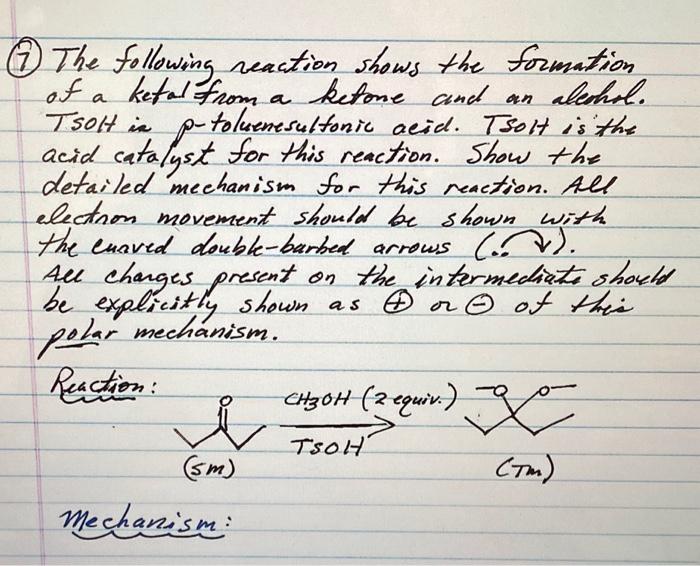 ⑦ The following reaction shows the formation
of a ketal from a ketone and an alcohol.
TSOH is p-toluenesulfonic acid. TSOH is the
acid catalyst for this reaction. Show the
detailed mechanism for this reaction. All
electron movement should be shown with
the curved double-barbed arrows (..↷).
All charges present on the intermediate should
be explicitly shown as ⊕ or ⊖ of this
polar mechanism.
Reaction:
O
CH3OH (2 equiv.)
TSOH
O O
(SM)
(TM)
Mechanism: